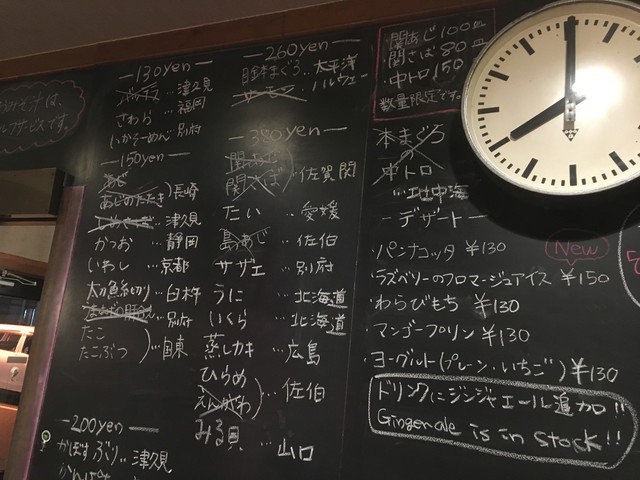 は、
ルフサービスです。
—130yen—
バッテラ…津久見
さわら…福岡
いかそーめん…別府
—150yen—
あじ
あじのたたき)長崎
しめさば…津久見
かつお…静岡
いわし…京都
太刀魚…臼杵
…別府
たこ
たこぶつ)…国東
—200yen—
かぼすぶり…津久見
—260yen—
まぐろ…太平洋
サーモン…ノルウェー
—350yen—
関あじ
関さば)佐賀関
たい…愛媛
島あじ…佐伯
サザエ…別府
うに…北海道
いくら…北海道
蒸しカキ…広島
ひらめ
えんがわ)…佐伯
みる貝…山口
関あじ100皿
関さば80皿
中トロ150
数量限定です。
本まぐろ
の
中トロ
…地中海
—デザート—
・パンナコッタ ¥130
New
・ラズベリーのフロマージュアイス ¥150
・わらびもち ¥130
・マンゴープリン ¥130
・ヨーグルト(プレーン・いちご) ¥130
ドリンクにジンジャエール追加!!
Gingerale is in stock!!